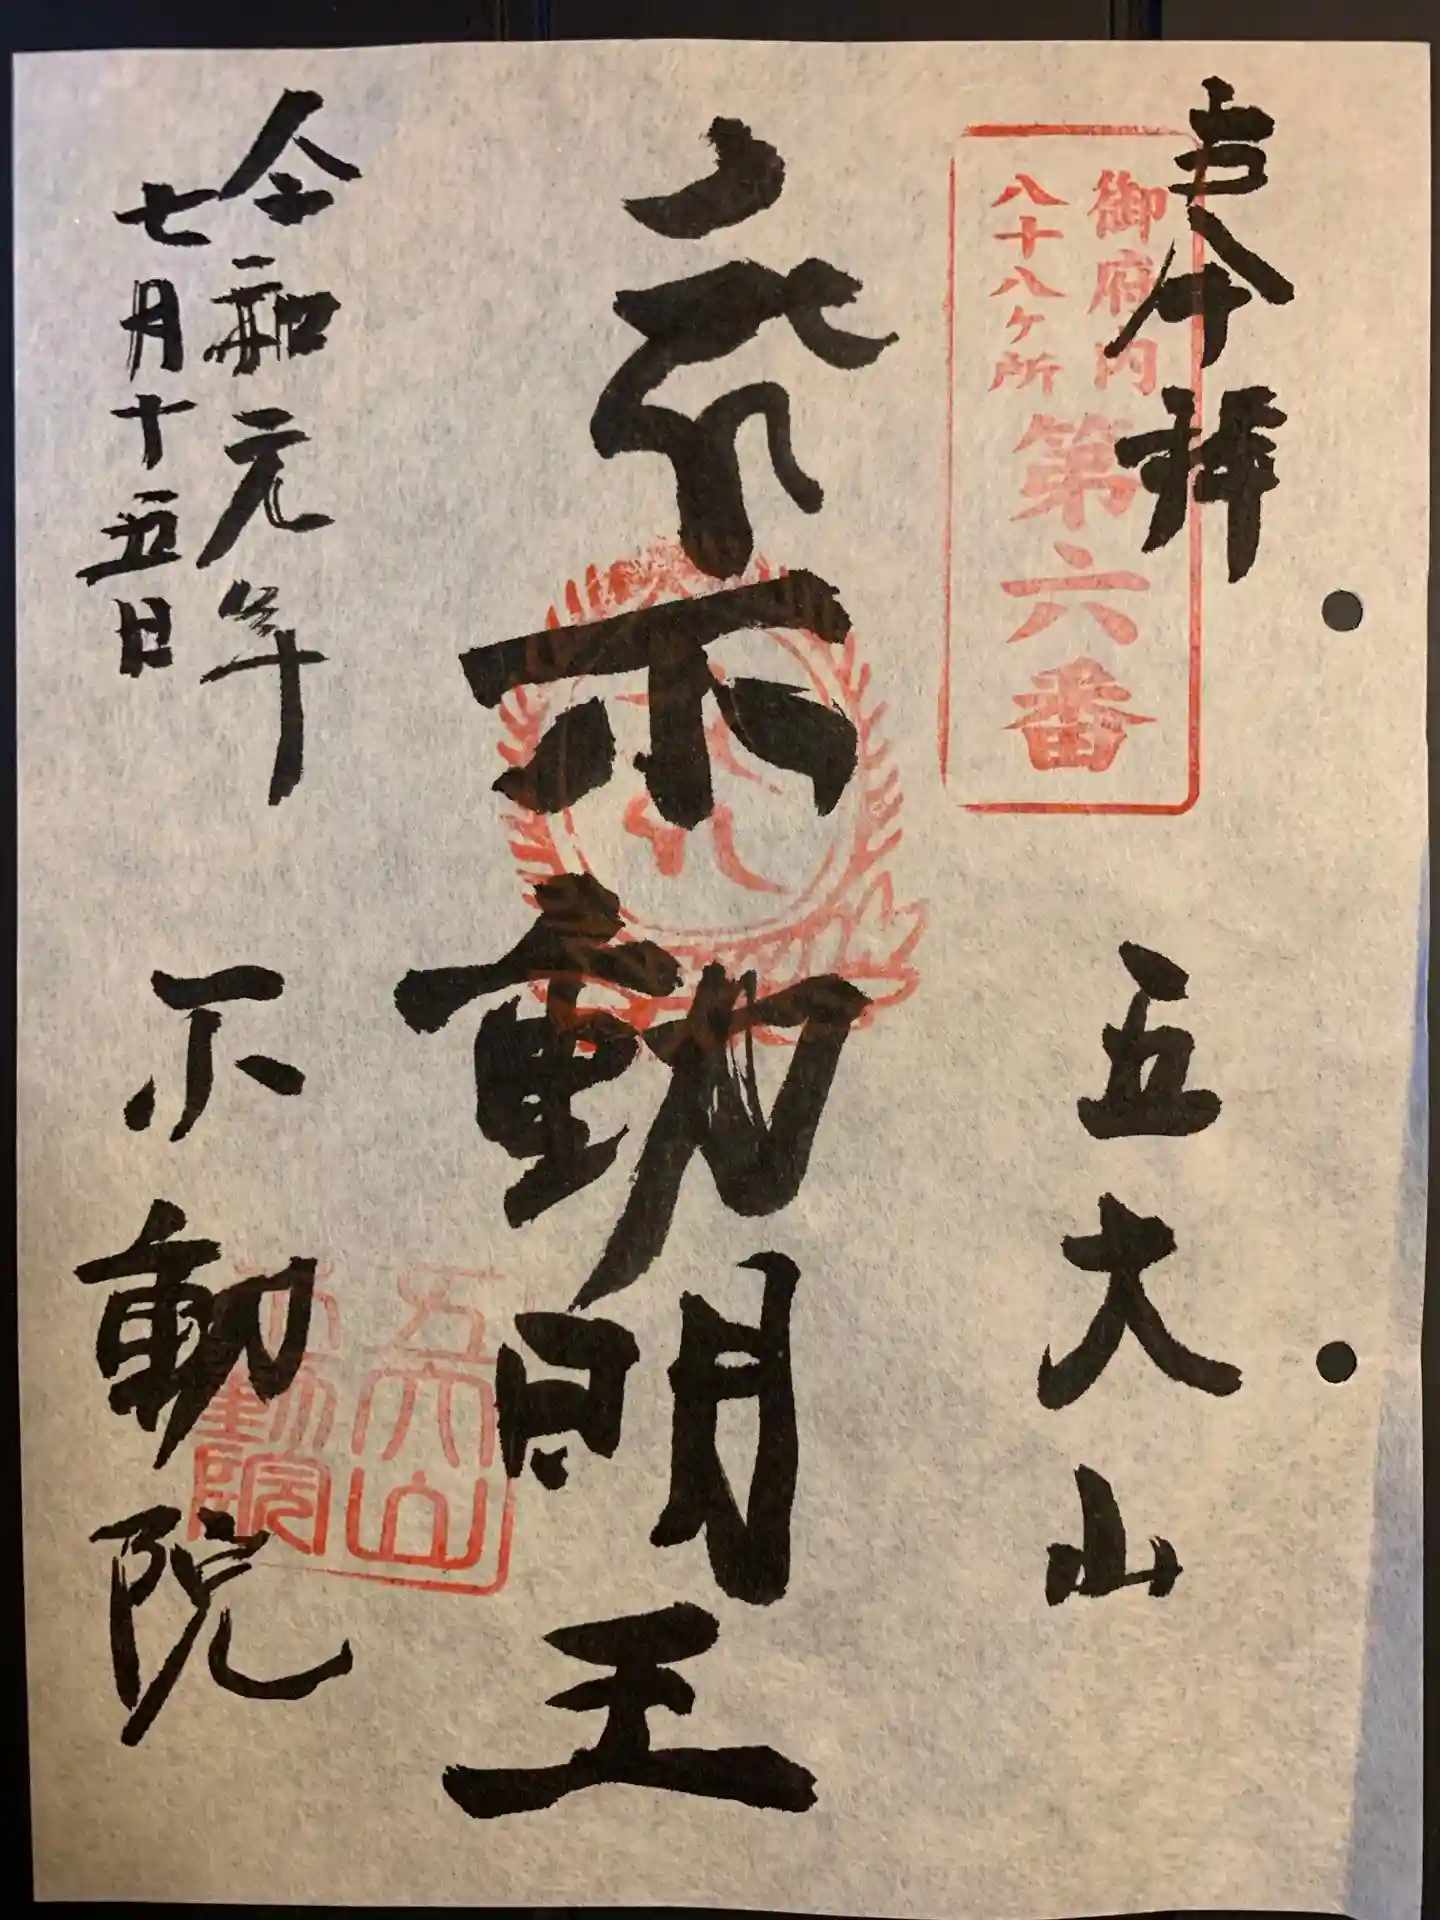 奉拝
御府内
八十八ケ所
第六番
五大山
不動明王
五大山
不動院
令和元年
七月十五日
不動院